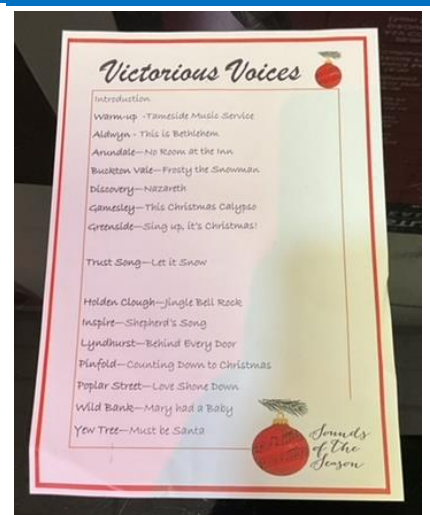 Victorious Voices
Introduction
Warm-up - Tameside Music Service
Aldwyn - This is Bethlehem
Arundale—No Room at the Inn
Buckton Vale—Frosty the Snowman
Discovery—Nazareth
Gamesley—This Christmas Calypso
Greenside—Sing up, it's Christmas!
Trust Song—Let it Snow
Holden Clough—Jingle Bell Rock
Inspire—Shepherd's Song
Lyndhurst—Behind Every Door
Pinfold—Counting Down to Christmas
Poplar Street—Love Shone Down
Wild Bank—Mary had a Baby
Yew Tree—Must be Santa
Sounds
of the
Season